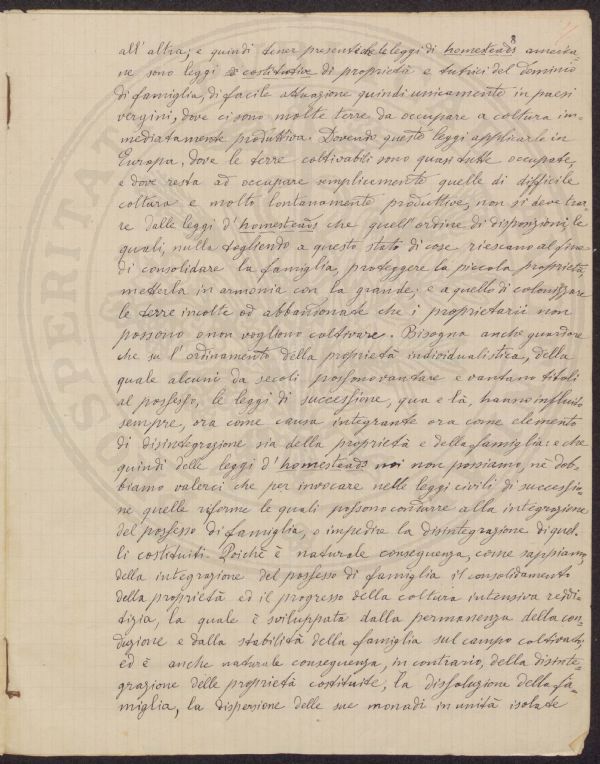 all'altra; e quindi tener presente che le leggi di homesteads america-
ne sono leggi costitutive di proprietà e tutrici del dominio
di famiglia, di facile attuazione quindi unicamente in paesi
vergini, dove ci sono molte terre da occupare a coltura im-
mediatamente produttiva. Dovendo queste leggi applicarle in
Europa, dove le terre coltivabili sono quasi tutte occupate,
e dove resta ad occupare semplicemente quelle di difficile
coltura e molto lontanamente produttive, non si deve trar-
re dalle leggi d'homesteads che quell'ordine di disposizioni, le
quali, nulla togliendo a questo stato di cose riescano al fine
di consolidare la famiglia, proteggere la piccola proprietà,
metterla in armonia con la grande; e a quello di colonizzare
le terre incolte od abbandonate che i proprietarii non
possono o non vogliono coltivare. Bisogna anche guardare
che su l'ordinamento della proprietà individualistica, della
quale alcuni da secoli possono vantare e vantano titoli
al possesso, le leggi di successione, qua e là, hanno influito
sempre, ora come causa integrante ora come elemento
di disintegrazione sia della proprietà e della famiglia: e che
quindi delle leggi d'homesteads noi non possiamo, nè dob-
biamo valerci che per invocare nelle leggi civili di successio-
ne quelle riforme le quali possono condurre alla integrazione
del possesso di famiglia, o impedire la disintegrazione di quel-
li costituiti. Poichè è naturale conseguenza, come sappiamo,
della integrazione del possesso di famiglia il consolidamento
della proprietà ed il progresso della coltura intensiva reddi-
tizia, la quale è sviluppata dalla permanenza della con-
duzione e dalla stabilità della famiglia sul campo coltivato;
ed è anche naturale conseguenza, in contrario, della disinte-
grazione delle proprietà costituite, la dissoluzione della fa-
miglia, la dispersione delle sue monadi in unità isolate